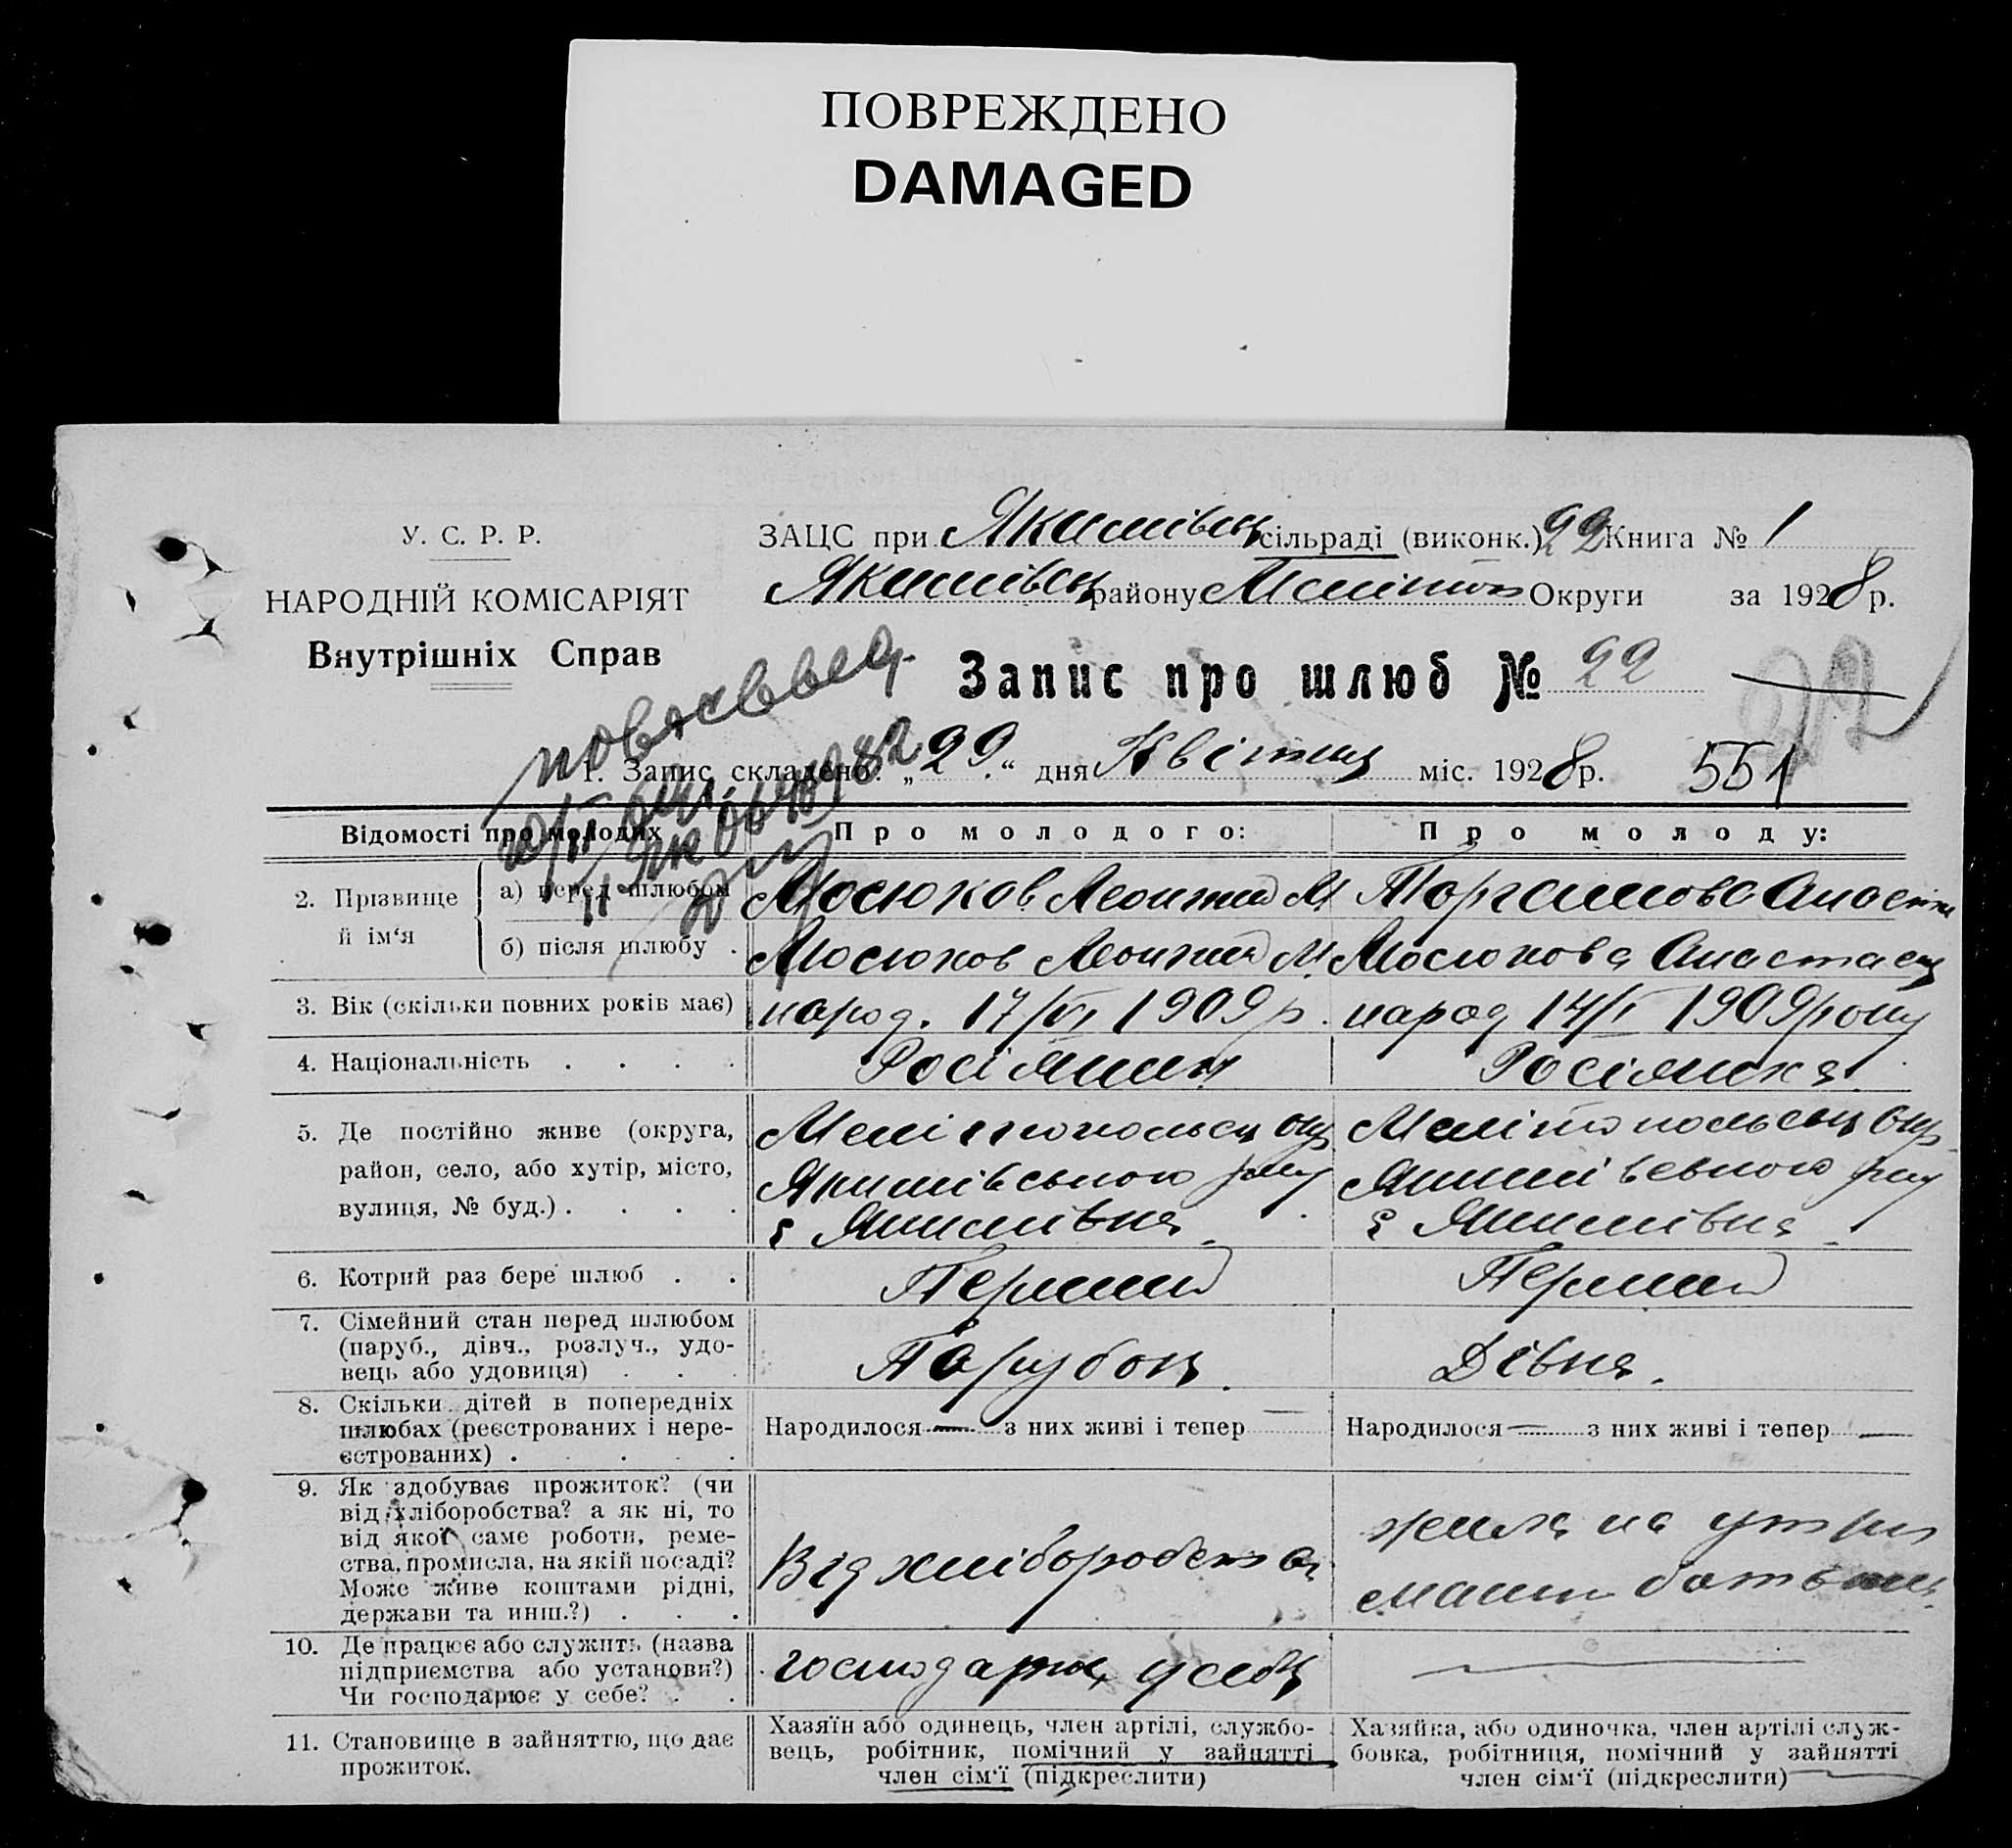 ПОВРЕЖДЕНО
DAMAGED
У. С. Р. Р.
НАРОДНІЙ КОМІСАРІЯТ
Внутрішніх Справ
ЗАЦС при Якимівськ сільраді (виконк.) 22 Книга № 1
Якимівськ району Мелітоп Округи за 1928 р.
Запис про шлюб № 22
22
1. Запис складено: „29“ дня Квітня міс. 1928 р. 551
Відомості про молодих
Про молодого:
Про молоду:
2. Прізвище й ім‘я
а) перед шлюбом
Мосюков Леонтий М
Торгашова Анастас
б) після шлюбу .
Мосюков Леонтий М.
Мосюкова Анастасия
3. Вік (скільки повних років має)
народ. 17/VI 1909 р.
народ 14/I 1909 року
4. Національність . . . .
Росіянин
Росіянка
5. Де постійно живе (округа,
район, село, або хутір, місто,
вулиця, № буд.) . . . .
Мелітопольськ окр
Якимівського рну
с Якимівка
Мелітопольськ окр
Якимівського рну
с Якимівка
6. Котрий раз бере шлюб . .
Перший
Перший
7. Сімейний стан перед шлюбом
(паруб., дівч., розлуч., удо-
вець або удовиця) . . .
Парубок.
Дівка.
8. Скільки дітей в попередніх
шлюбах (реєстрованих і нере-
єстрованих) . . . . .
Народилося — з них живі і тепер —
Народилося — з них живі і тепер —
9. Як здобуває прожиток? (чи
від хліборобства? а як ні, то
від якої саме роботи, реме-
ства, промисла, на якій посаді?
Може живе коштами рідні,
держави та инш.?) . . .
Від хліборобства
жила на утри
манні батьків
10. Де працює або служить (назва
підприємства або установи?)
Чи господарює у себе? . .
господарює у себе
—
11. Становище в зайняттю, що дає
прожиток.
Хазяїн або одинець, член артілі, службо-
вець, робітник, помічний у зайнятті
член сім‘ї (підкреслити)
Хазяйка, або одиночка, член артілі служ-
бовка, робітниця, помічний у зайнятті
член сім‘ї (підкреслити)